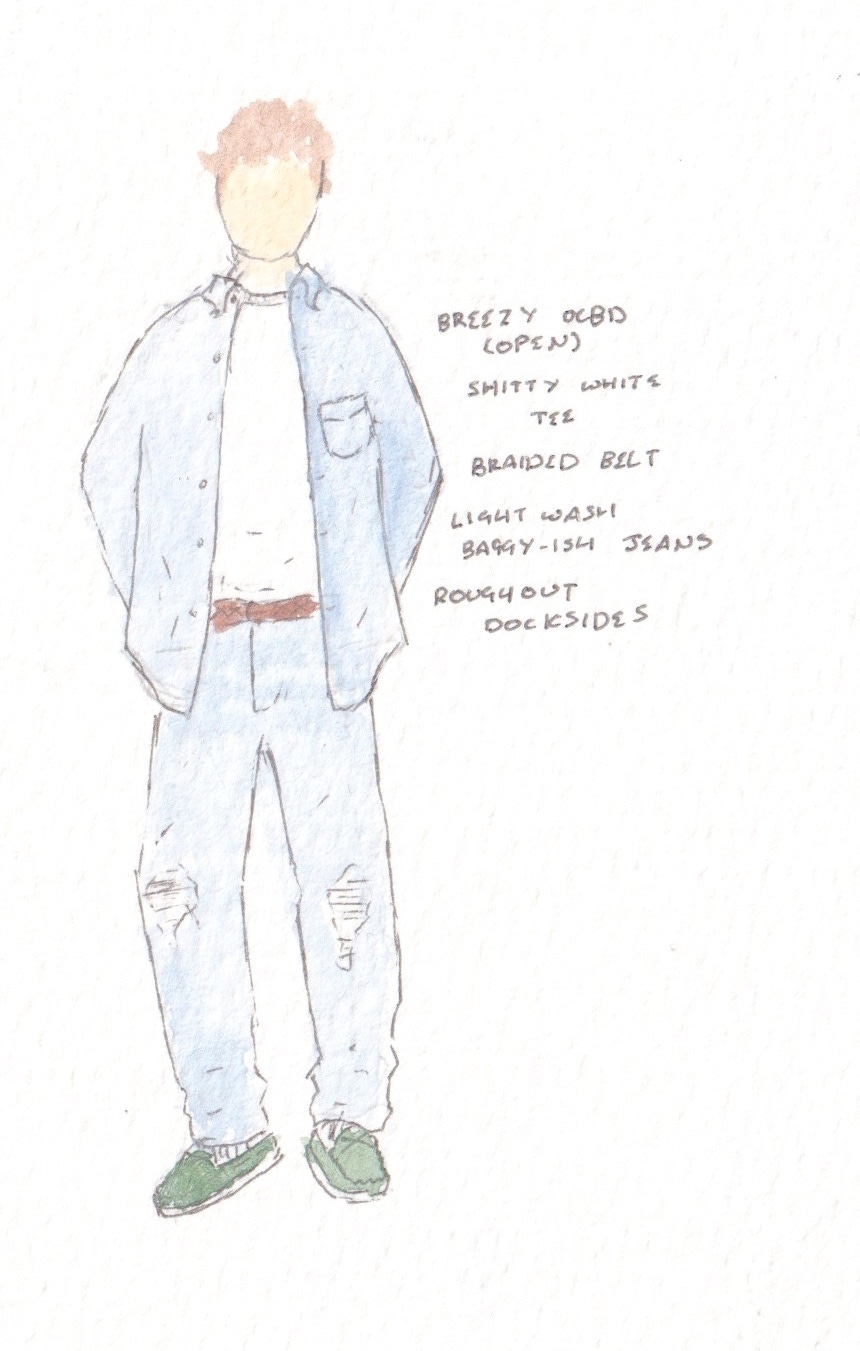 BREEZY OCBD
(OPEN)
SHITTY WHITE
TEE
BRAIDED BELT
LIGHT WASH
BAGGY-ISH JEANS
ROUGHOUT
DOCKSIDES